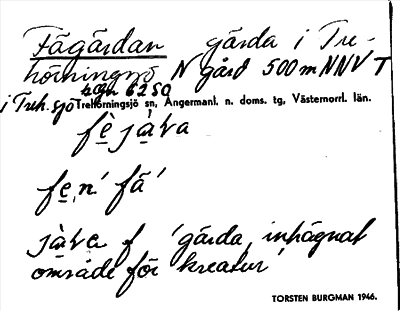 Fägärdan gärda i Tre-
hörningsjö N gård 500 m NNV T
i Treh.sjö Trehörningsjö sn, Ångermanl. n. doms. tg, Västernorrl. län.
fè jàva
fe̱n 'fä'
jàva f 'gärda, inhägnat
område för kreatur'
TORSTEN BURGMAN 1946.